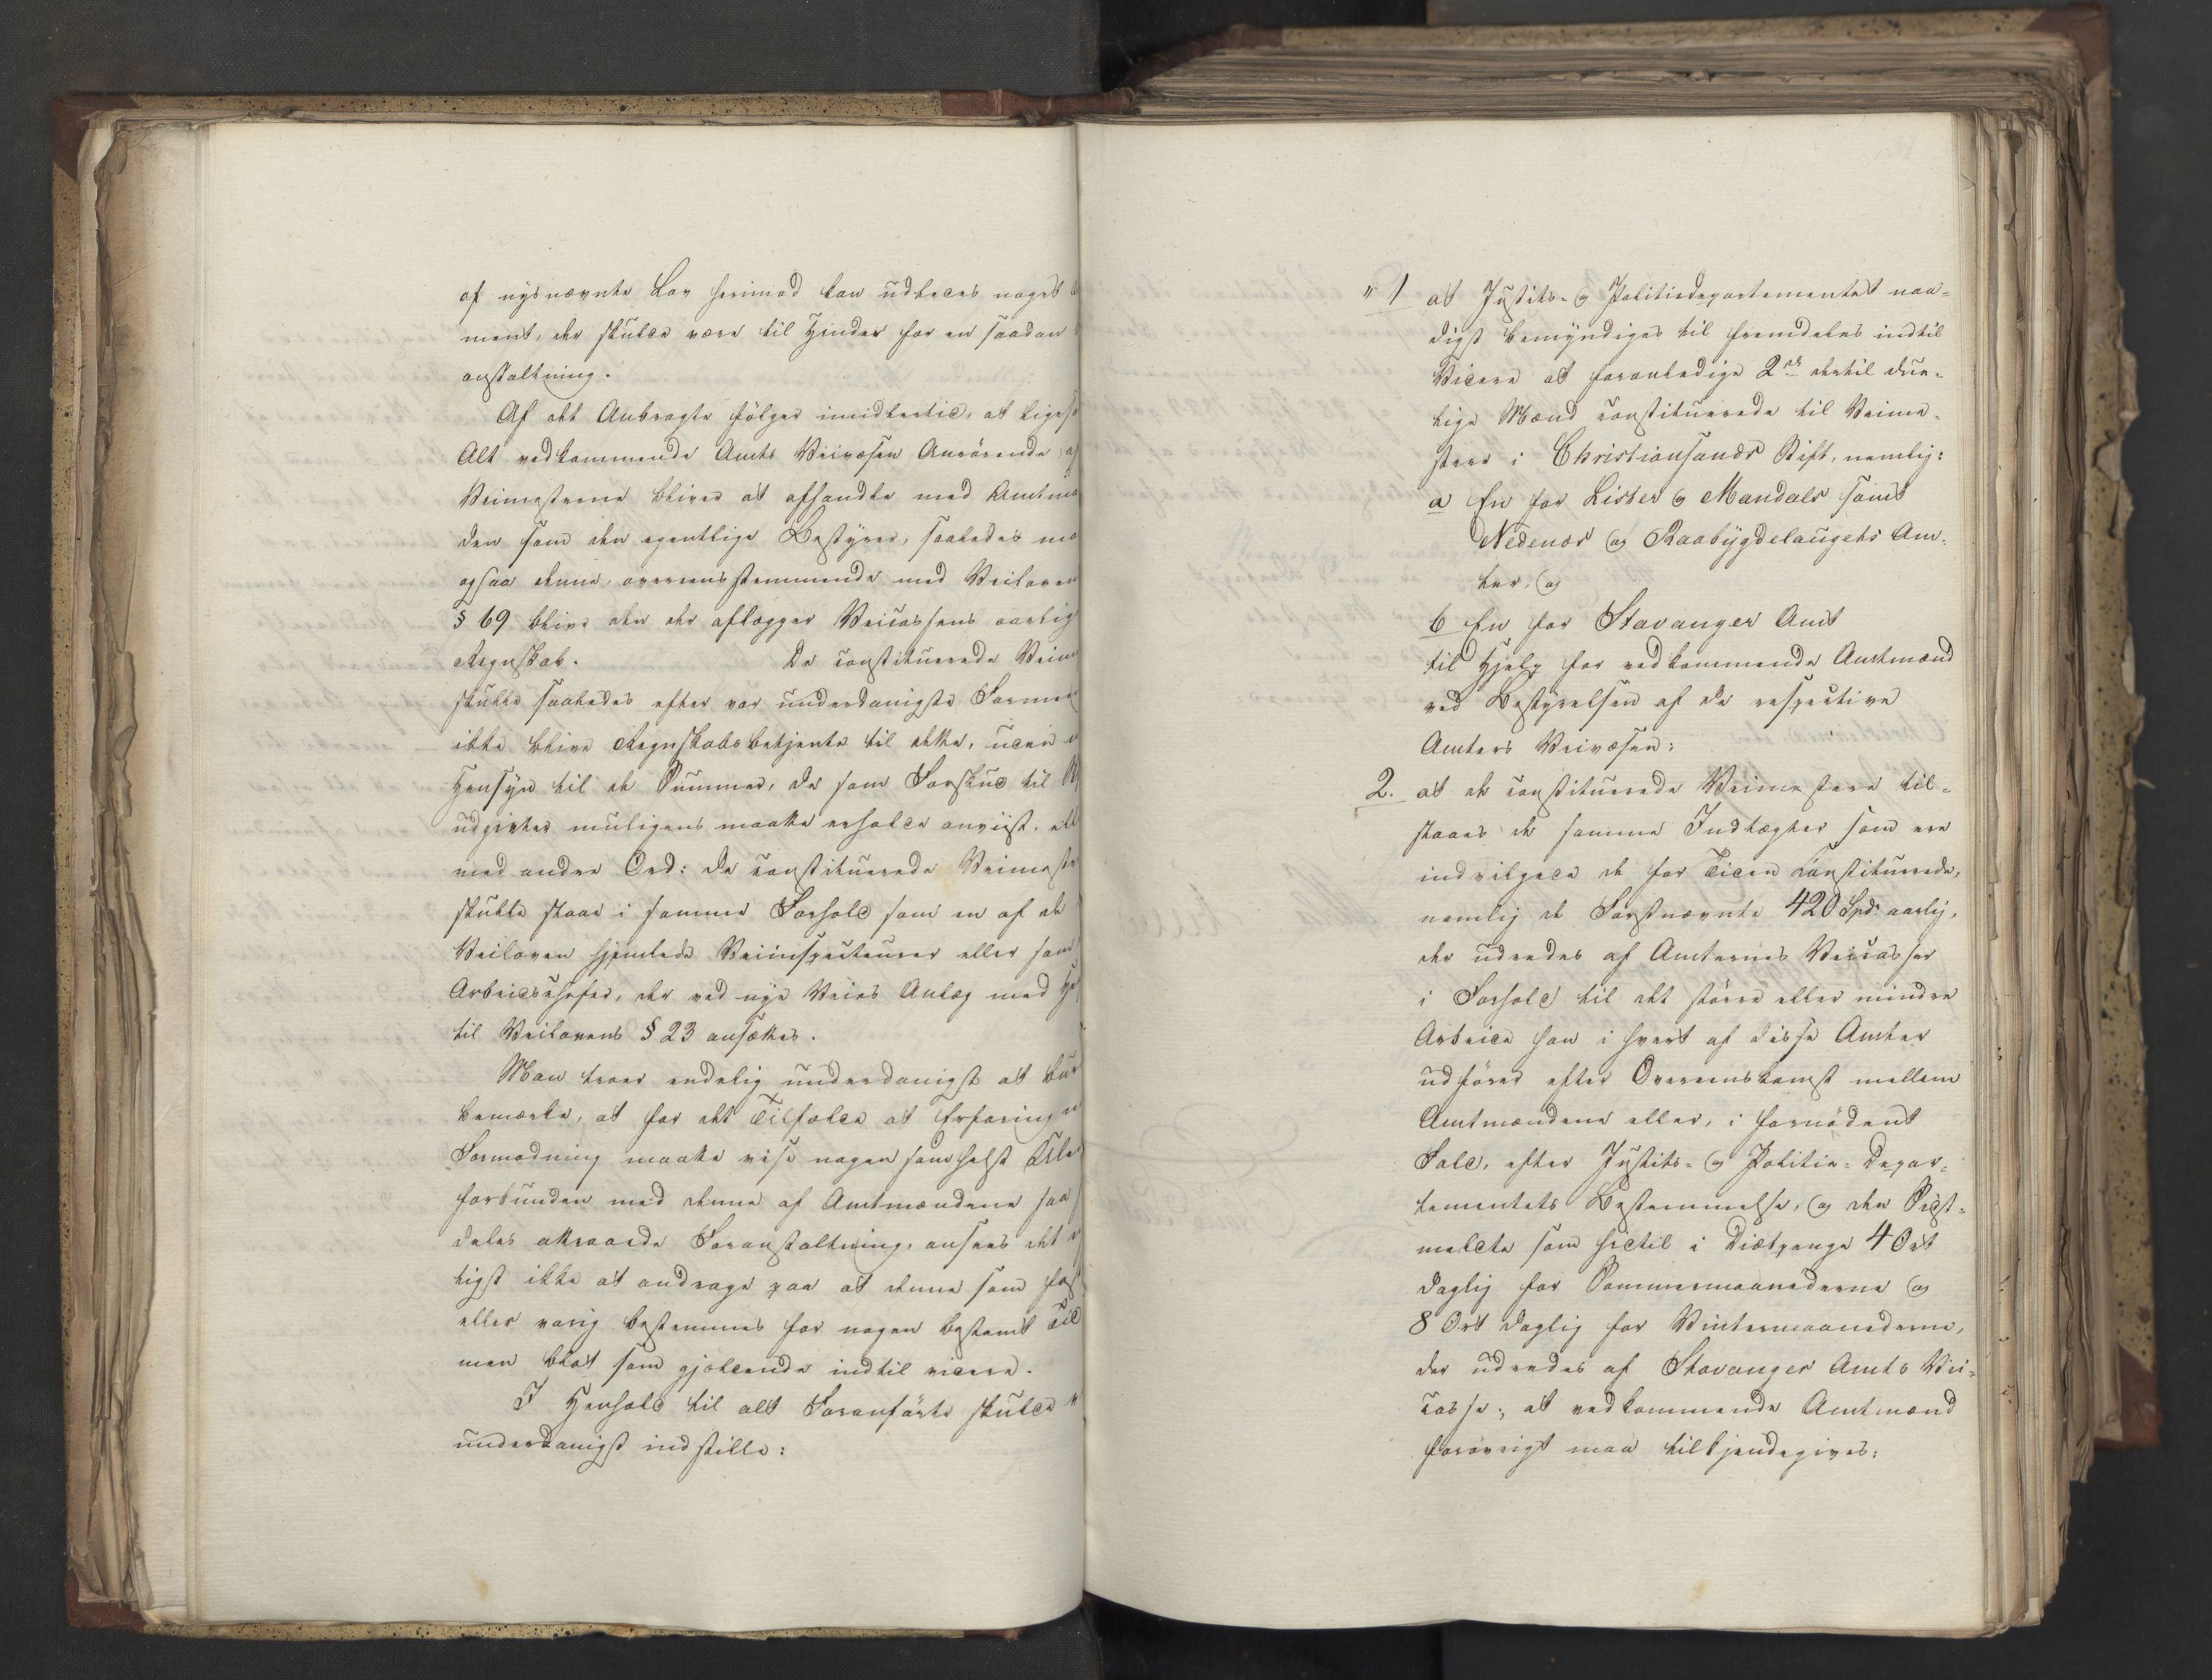 af nysnævnte Lov herimod kan udledes noget
ment, der skulde være til Hinder for en saadan
anstaltning.
Af det Anbragte følger imidlertid, at ligeso
Alt vedkommende Amts Veivæsen Anrørende af
Veimesterne bliver at afhandle med Amtma
den som den egentlige Bestyrer, saaledes ma
ogsaa denne, overensstemmende med Veiloven
§ 69 blive den der aflægger Veicassens aarlig
Regnskab. De constituerede Veim
skulle saaledes efter vor underdanigste Forme
ikke blive Regnskabsbetjente til dette, uden
Hensyn til de Summer, de som Forskud til
udgivter muligens maatte erholde anviist, ell
med andre Ord: de constituerede Veimeste
skulle staae i samme Forhold som en af de
Veiloven hjemlede Veiinspecteurer eller som
Arbeidschefer, der ved nye Veies Anlæg med
til Veilovens § 23 ansættes.
Man troer endelig underdanigst at bur
bemærke, at for det Tilfælde at Erfaring
Formodning maatte vise nogen somhelst
forbunden med denne af Amtmændene saa
deles attraaede Foranstaltning, ansees det
ligst ikke at andrage paa at denne som fast
eller varig bestemmes for nogen bestemt Tid
men blot som gjældende indtil videre.
I Henhold til alt Foranførte skulde
underdanigst indstille:
"1 at Justits- og Politiedepartementet naa-
digst bemyndiges til fremdeles indtil
Videre at foranledige 2de dertil due-
lige Mænd constituerede til Veime-
stere i Christiansands Stift, nemlig:
a En for Lister og Mandals samt
Nedenæs og Raabygdelaugets Am-
ter, og
b En for Stavanger Amt
til Hjelp for vedkommende Amtmænd
ved Bestyrelsen af de respective
Amters Veivæsen;
2. at de constituerede Veimestere til-
staaes de samme Indtægter som ere
indvilgede de for Tiden Constituerede,
nemlig de Førstnævnte 420 Spd. aarlig,
der udredes af Amternes Veicasser
i Forhold til det større eller mindre
Arbeide han i hvert af disse Amter
udfører efter Overeenskomst mellem
Amtmændene eller, i fornødent
Fald, efter Justits- og Politie-Depar-
tementets Bestemmelse, og den Sidst-
meldte som hidtil i Diætpenge 4 Ort
daglig for Sommermaanederne og
8 Ort daglig for Vintermaanederne,
der udredes af Stavanger Amts Vei-
casse; at vedkommende Amtmænd
forøvrigt maa tilkjendegives: